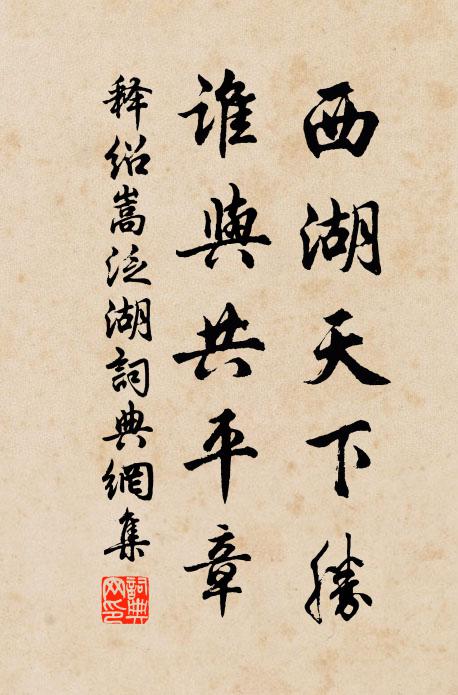 西湖天下勝
誰與共平章
释绍嵩泛湖詞典網集
詞典网印